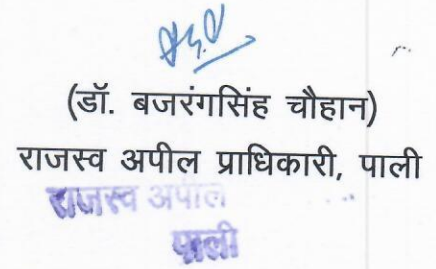 (डॉ. बजरंगसिंह चौहान)
राजस्व अपील प्राधिकारी, पाली
राजस्व अपील
पाली